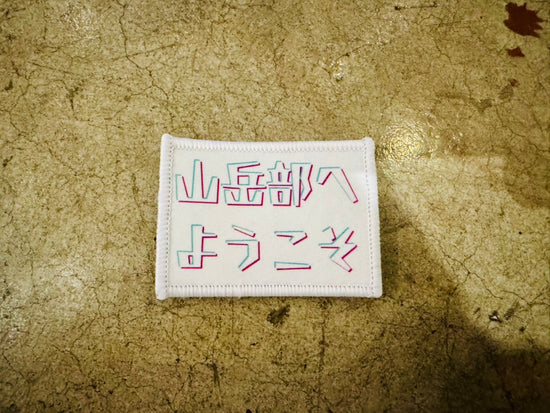 山岳部へ
ようこそ